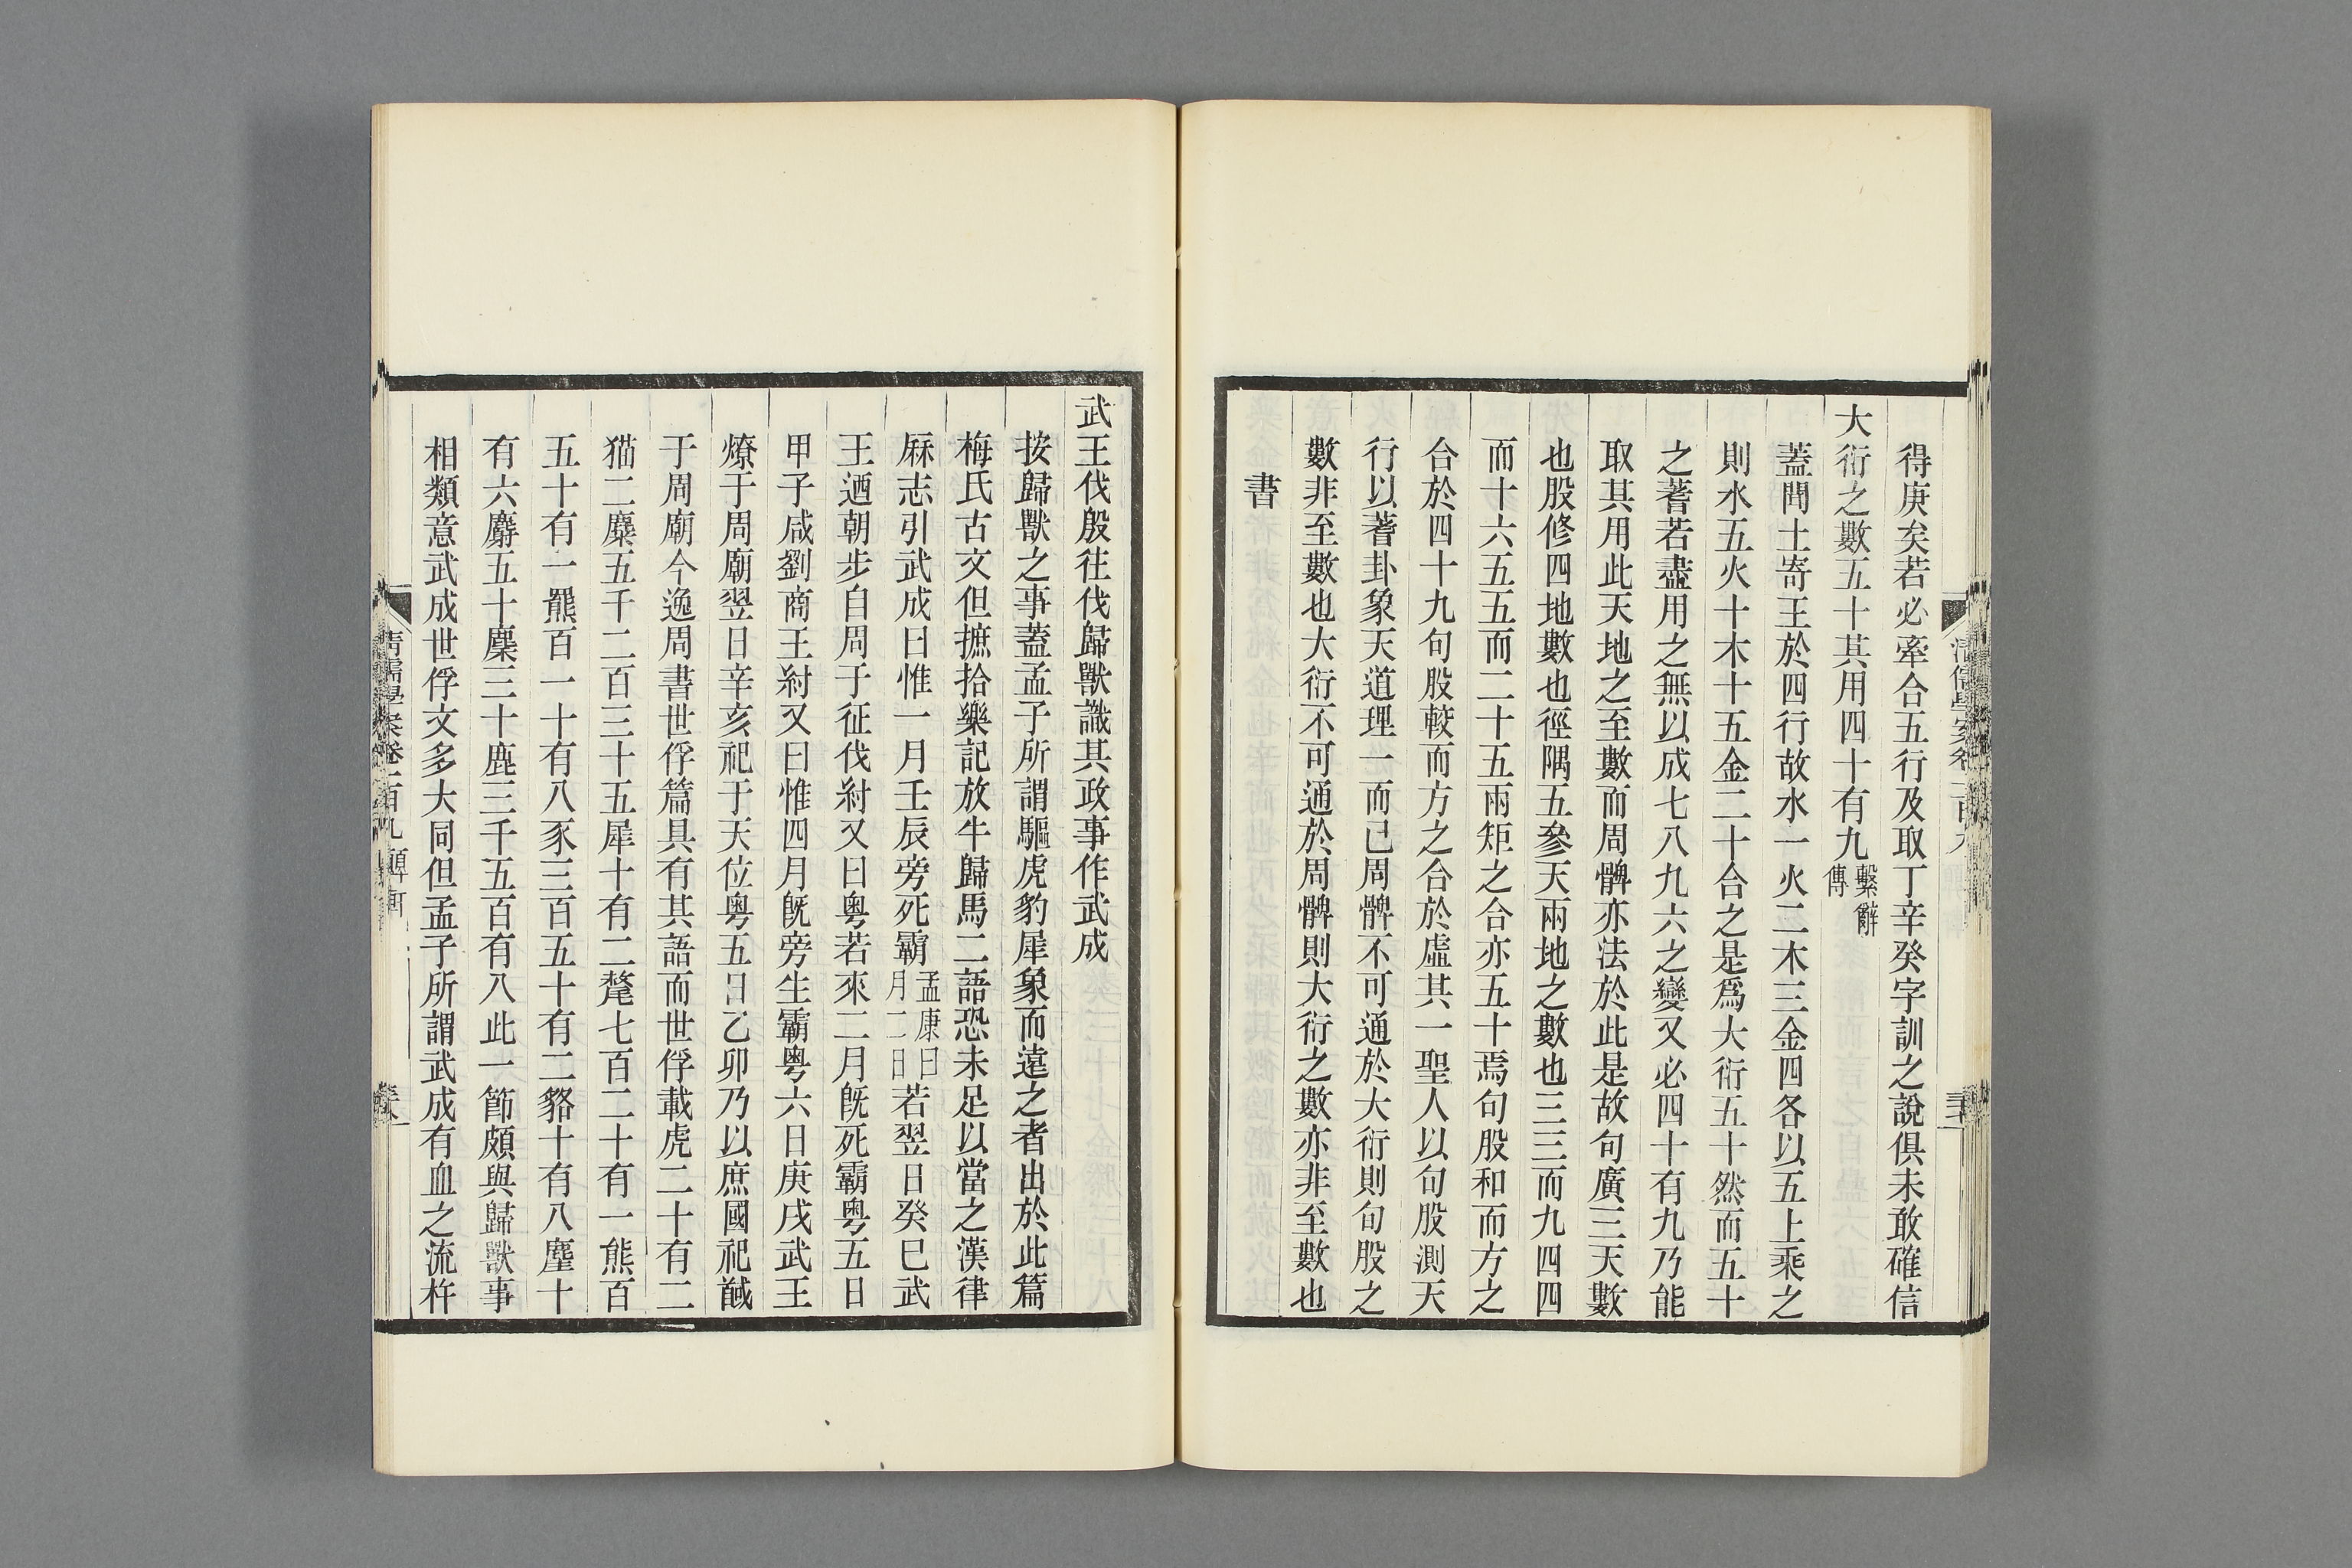 得庚矣若必牽合五行及取丁辛癸字訓之說俱未敢確信
大衍之數五十其用四十有九繫辭傳
蓋聞土寄王於四行故水一火二木三金四各以五上乘之
則水五火十木十五金二十合之是爲大衍五十然而五十
之蓍若盡用之無以成七八九六之變又必四十有九乃能
取其用此天地之至數而周髀亦法於此是故句廣三天數
也股修四地數也徑隅五參天兩地之數也三三而九四四
而十六五五而二十五兩矩之合亦五十焉句股和而方之
合於四十九句股較而方之合於虛其一聖人以句股測天
行以蓍卦象天道理一而已周髀不可通於大衍則句股之
數非至數也大衍不可通於周髀則大衍之數亦非至數也
書
武王伐殷往伐歸獸識其政事作武成
按歸獸之事蓋孟子所謂驅虎豹犀象而遠之者出於此篇
梅氏古文但摭拾樂記放牛歸馬二語恐未足以當之漢律
厤志引武成曰惟一月壬辰旁死霸孟康曰月二日若翌日癸巳武
王迺朝步自周于征伐紂又曰粵若來二月旣死霸粵五日
甲子咸劉商王紂又曰惟四月旣旁生霸粵六日庚戌武王
燎于周廟翌日辛亥祀于天位粵五日乙卯乃以庶國祀馘
于周廟今逸周書世俘篇具有其語而世俘載虎二十有二
猫二麋五千二百三十五犀十有二氂七百二十有一熊百
五十有一羆百一十有八豕三百五十有二貉十有八麈十
有六麝五十麋三十鹿三千五百有八此一節頗與歸獸事
相類意武成世俘文多大同但孟子所謂武成有血之流杵
清儒學案卷一百九 顨軒